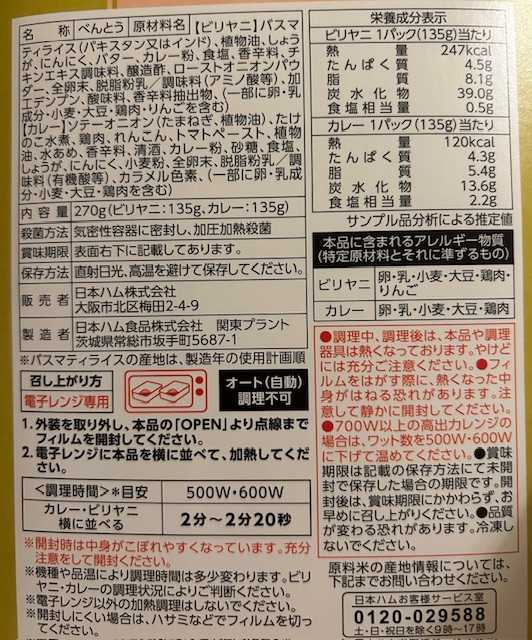 名 称 べんとう 原材料名 【ビリヤニ】バスマ
ティライス(パキスタン又はインド)、植物油、しょう
が、にんにく、バター、カレー粉、食塩、香辛料、チ
キンエキス調味料、醸造酢、ローストオニオンパウ
ダー、全卵末、脱脂粉乳/調味料(アミノ酸等)、加
工デンプン、酸味料、香辛料抽出物、(一部に卵・乳
成分・小麦・大豆・鶏肉・りんごを含む)
【カレー】ソテーオニオン(たまねぎ、植物油)、たけ
のこ水煮、鶏肉、れんこん、トマトペースト、植物
油、水あめ、香辛料、清酒、カレー粉、砂糖、食塩、
しょうが、にんにく、小麦粉、全卵末、脱脂粉乳/調
味料(有機酸等)、カラメル色素、(一部に卵・乳成
分・小麦・大豆・鶏肉を含む)
内 容 量 270g(ビリヤニ:135g、カレー:135g)
殺菌方法 気密性容器に密封し、加圧加熱殺菌
賞味期限 表面右下に記載してあります。
保存方法 直射日光、高温を避けて保存してください。
販 売 者 日本ハム株式会社
大阪市北区梅田2-4-9
製 造 者 日本ハム食品株式会社 関東プラント
茨城県常総市坂手町5687-1
※バスマティライスの産地は、製造年の使用計画順
召し上がり方
電子レンジ専用
オート(自動)
調理不可
1. 外装を取り外し、本品の「OPEN」より点線まで
フィルムを開封してください。
2. 電子レンジに本品を横に並べて、加熱してくだ
さい。
<調理時間>*目安 500W・600W
カレー・ビリヤニ
横に並べる
2分~2分20秒
※開封時は中身がこぼれやすくなっています。充分
注意をして開封ください。
※機種や品温により調理時間は多少変わります。ビリ
ヤニ・カレーの調理状況によりご判断ください。
※電子レンジ以外の加熱調理はしないでください。
※開封しにくい場合は、ハサミなどでフィルムを切っ
てください。
栄養成分表示
ビリヤニ 1パック(135g)当たり
熱 量 247kcal
たんぱく質 4.5g
脂 質 8.1g
炭水化物 39.0g
食塩相当量 0.5g
カレー 1パック(135g)当たり
熱 量 120kcal
たんぱく質 4.3g
脂 質 5.4g
炭水化物 13.6g
食塩相当量 2.2g
サンプル品分析による推定値
本品に含まれるアレルギー物質
(特定原材料とそれに準ずるもの)
ビリヤニ 卵・乳・小麦・大豆・鶏肉・
りんご
カレー 卵・乳・小麦・大豆・鶏肉
●調理中、調理後は、本品や調理
器具は熱くなっております。やけど
には充分ご注意ください。●フィ
ルムをはがす際に、熱くなった中
身がはねる恐れがあります。注
意して静かに開封してください。
●700W以上の高出力レンジの
場合は、ワット数を500W・600W
に下げて温めてください。●賞味
期限は記載の保存方法にて未開
封で保存した場合の期限です。開
封後は、賞味期限にかかわらず、お
早めに召し上がりください。●品質
が変わる恐れがあります。冷凍し
ないでください。
原料米の産地情報については、
下記までお問い合わせください。
日本ハムお客様サービス室
0120-029588
(土・日・祝日を除く9時~17時)